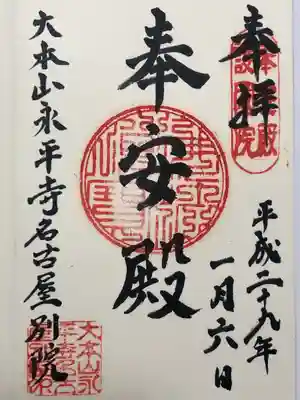 奉拝
平成二十九年
一月六日
奉安殿
大本山永平寺名古屋別院